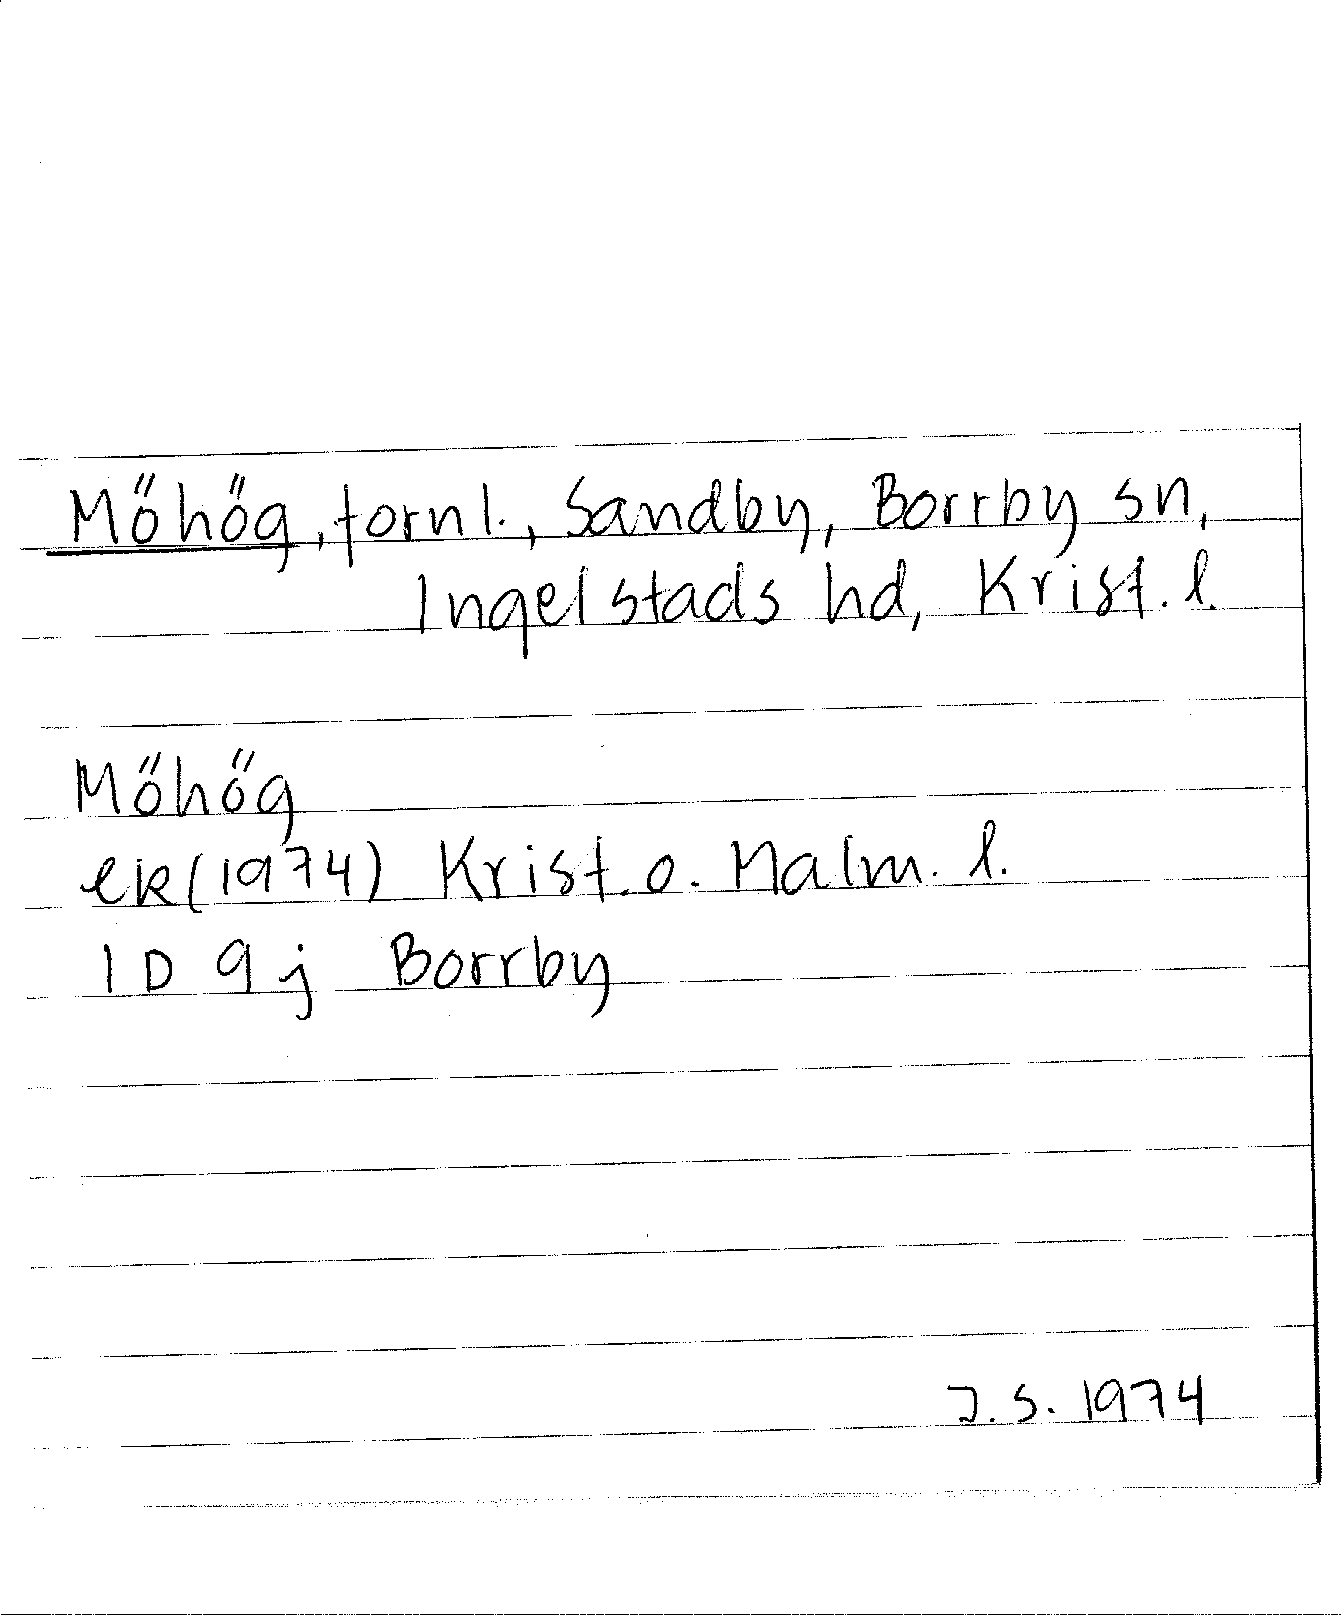 Möhög, fornl., Sandby, Borrby sn,
Ingelstads hd, Krist. l.
Möhög
ek (1974) Krist. o. Malm. l.
1D 9j Borrby
J. S. 1974